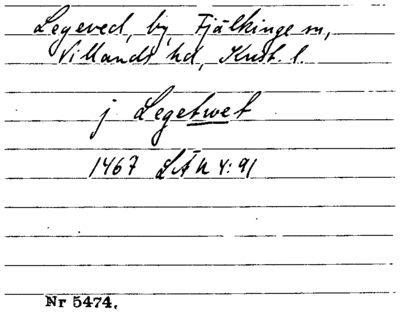 Legeved, by, Fjälkinge sn,
Villands hd, Krist. l.
j Legetwet
1467 LÄU 4:91
Nr 5474.